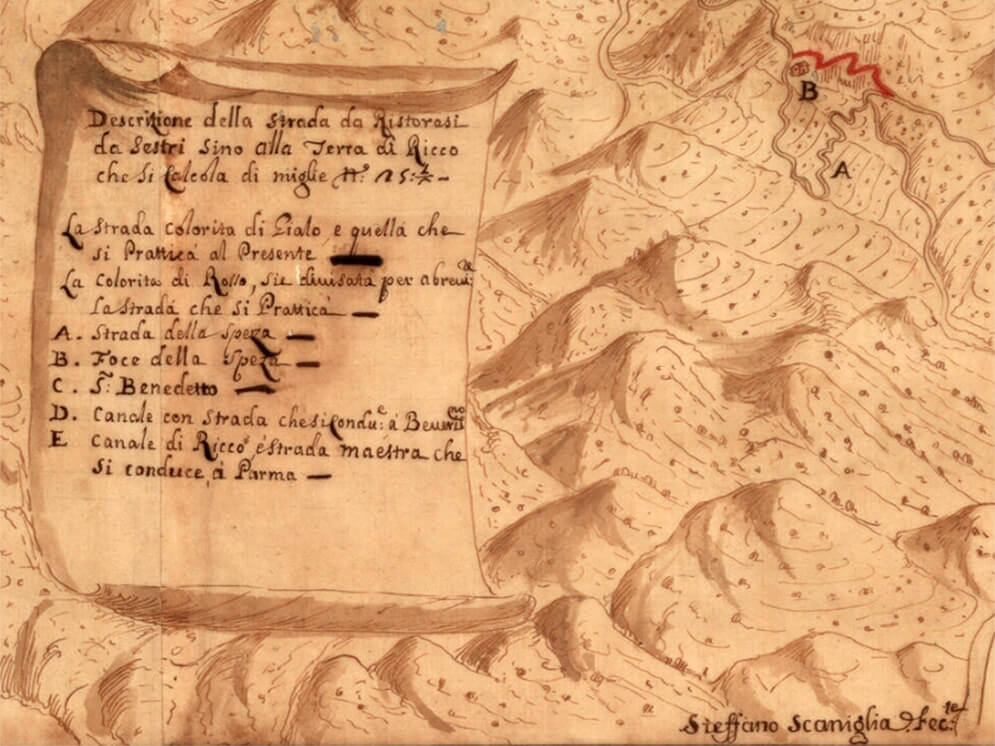 Descrizione della strada da Ristorasi
da Sestri Sino alla Terra di Ricco
che Si Calcola di miglie N.º 15:½ –
La Strada colorita di Gialo e quella che
si Prattica al Presente —
La Colorita di Rosso, sie diuisata per abreui:
la strada che si Prattica —
A. Strada della Speza —
B. Foce della Speza —
C. S.ⁿ Benedetto —
D. Canale con Strada che si Condu:ᵉ á Beuerinoᵒ
E Canale di Riccó, é Strada maestra che
Si conduce, á Parma —
B
A
Steffano Scaniglia Fec:ᵗᵉ